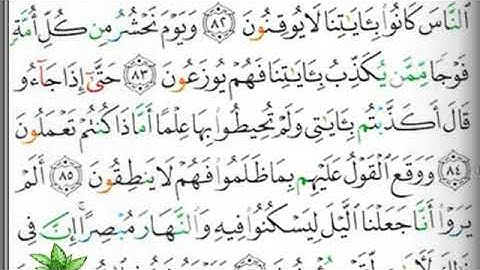 ٱلنَّاسَ كَانُوا۟ بِـَٔايَـٰتِنَا لَا يُوقِنُونَ ۝٨٢ وَيَوْمَ نَحْشُرُ مِن كُلِّ أُمَّةٍ
فَوْجًا مِّمَّن يُكَذِّبُ بِـَٔايَـٰتِنَا فَهُمْ يُوزَعُونَ ۝٨٣ حَتَّىٰٓ إِذَا جَآءُو
قَالَ أَكَذَّبْتُم بِـَٔايَـٰتِى وَلَمْ تُحِيطُوا۟ بِهَا عِلْمًا أَمَّاذَا كُنتُمْ تَعْمَلُونَ
۝٨٤ وَوَقَعَ ٱلْقَوْلُ عَلَيْهِم بِمَا ظَلَمُوا۟ فَهُمْ لَا يَنطِقُونَ ۝٨٥ أَلَمْ
يَرَوْا۟ أَنَّا جَعَلْنَا ٱلَّيْلَ لِيَسْكُنُوا۟ فِيهِ وَٱلنَّهَارَ مُبْصِرًا ۚ إِنَّ فِى